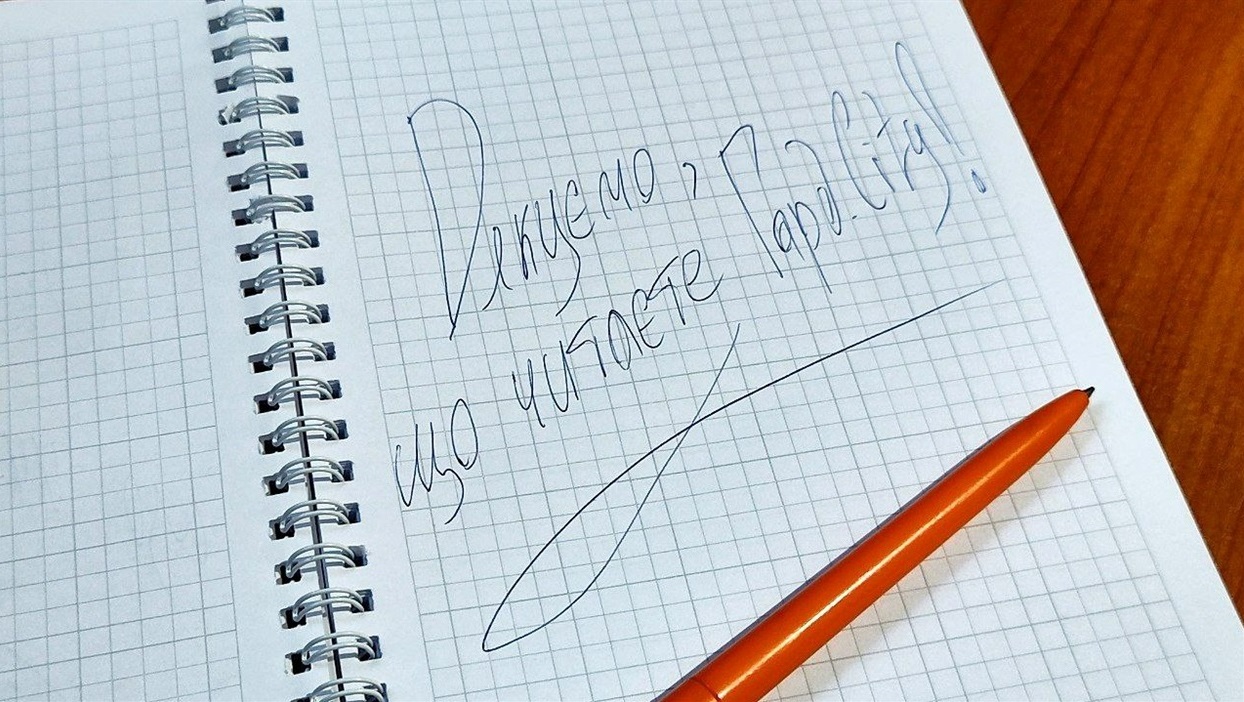 Дякуємо,
що читаєте Гард.City!